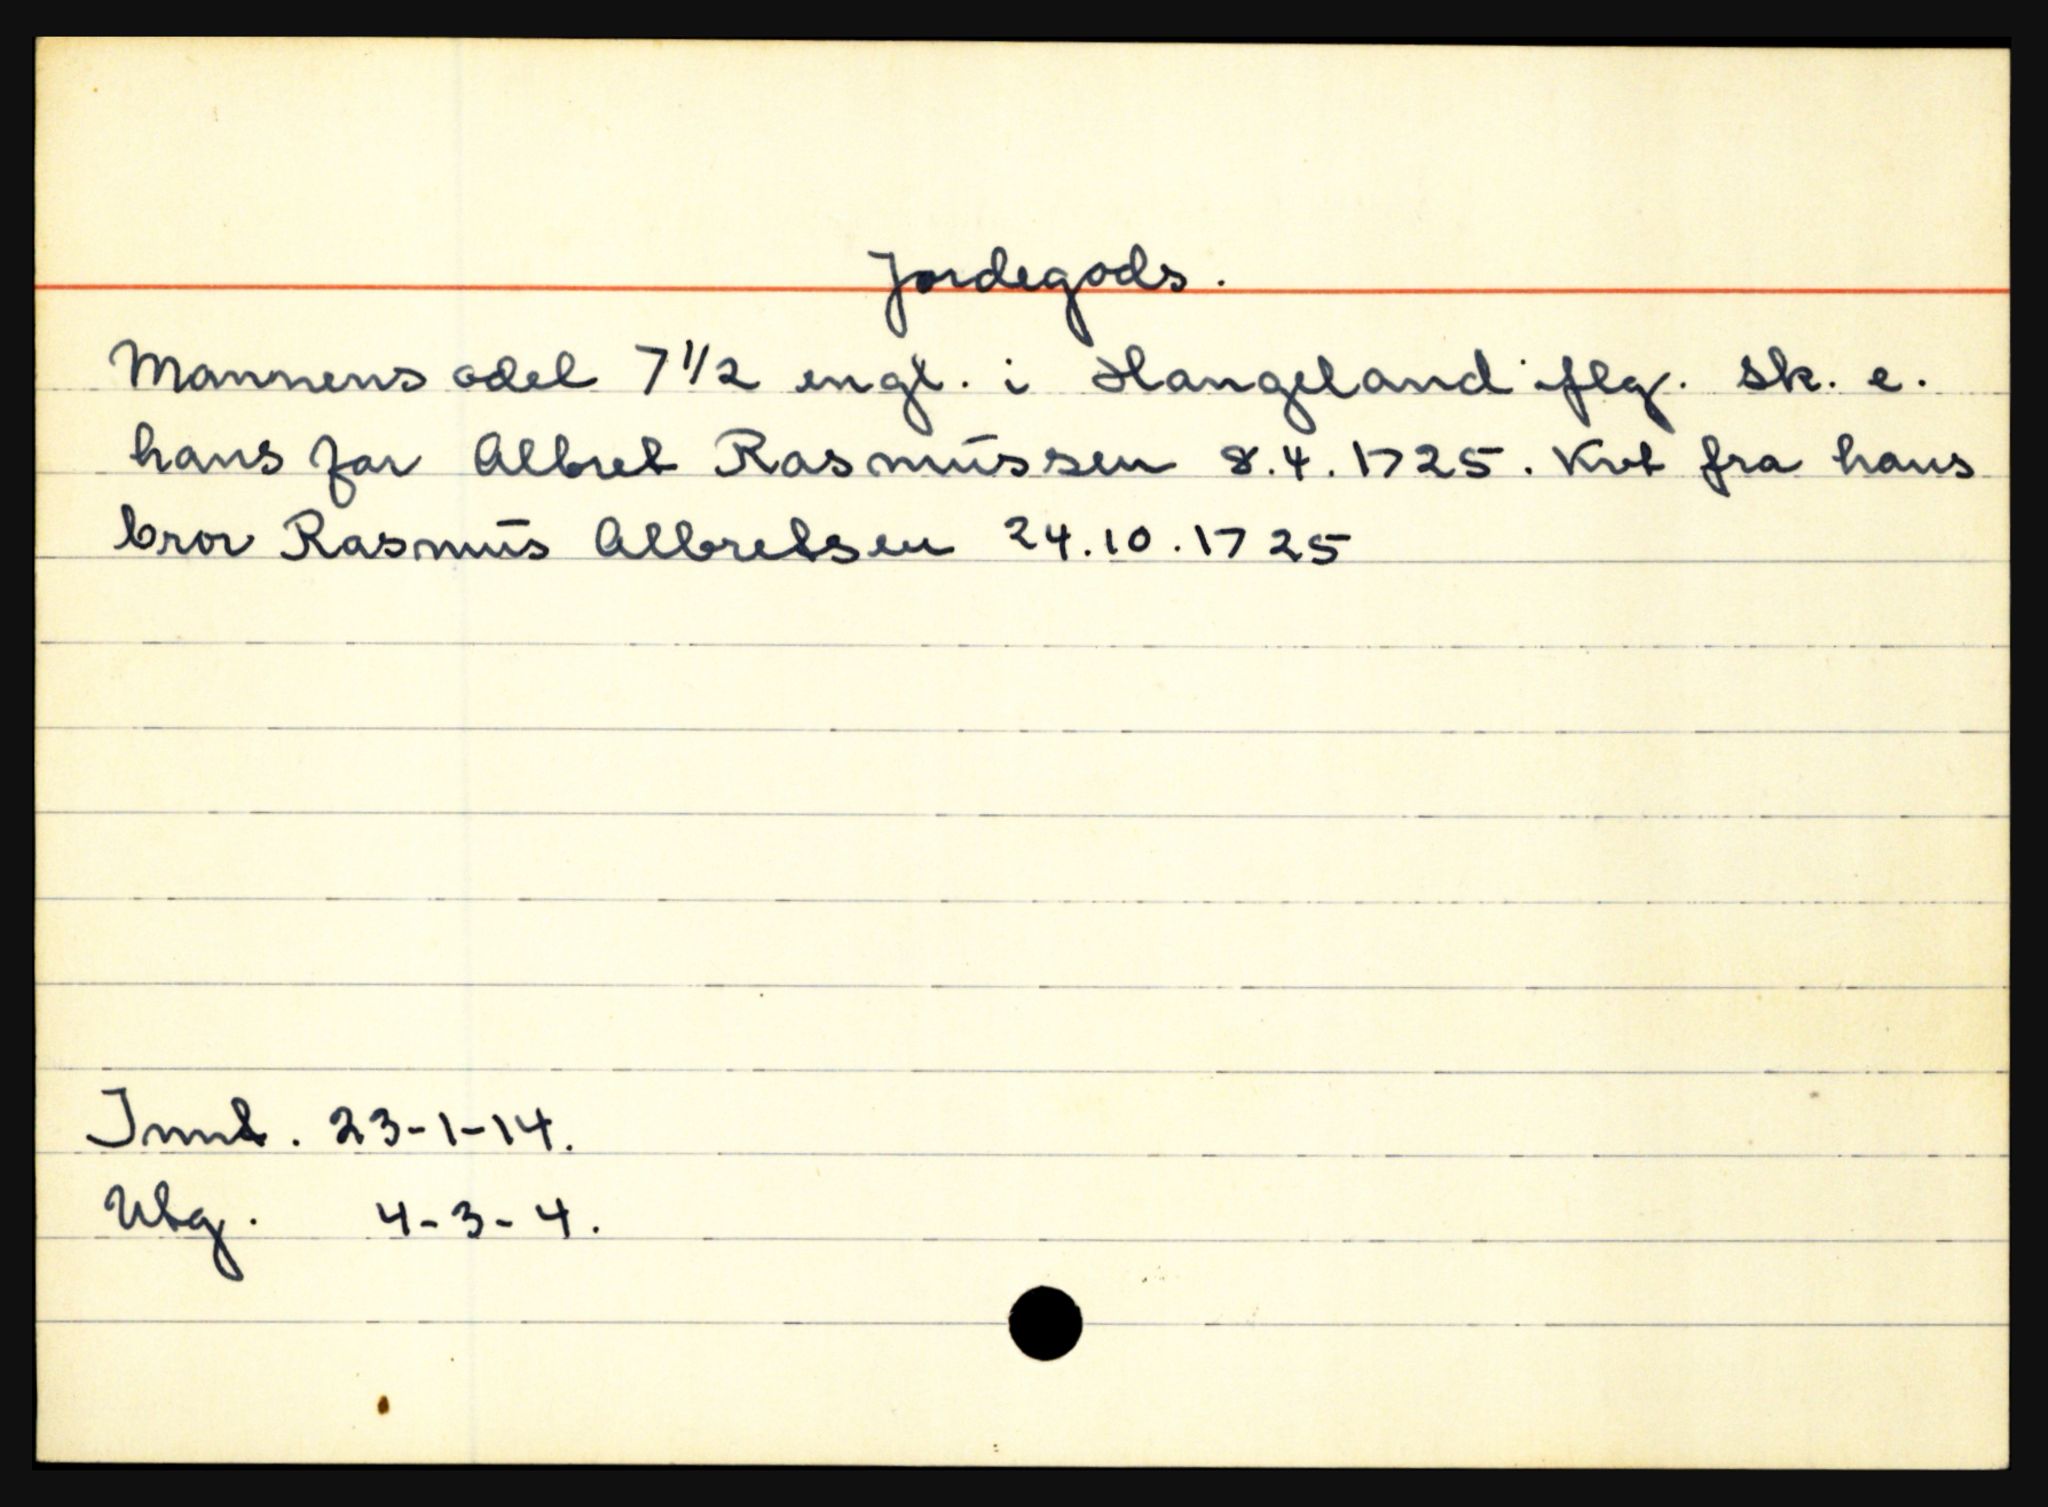 Jordegods.
Mannens odel 7 1/2 engl. i Hangeland flg. sk. e.
hans far Albret Rasmussen 8.4.1725. Kvt fra hans
bror Rasmus Albretsen 24.10.1725
Innt. 23-1-14.
Utg. 4-3-4.